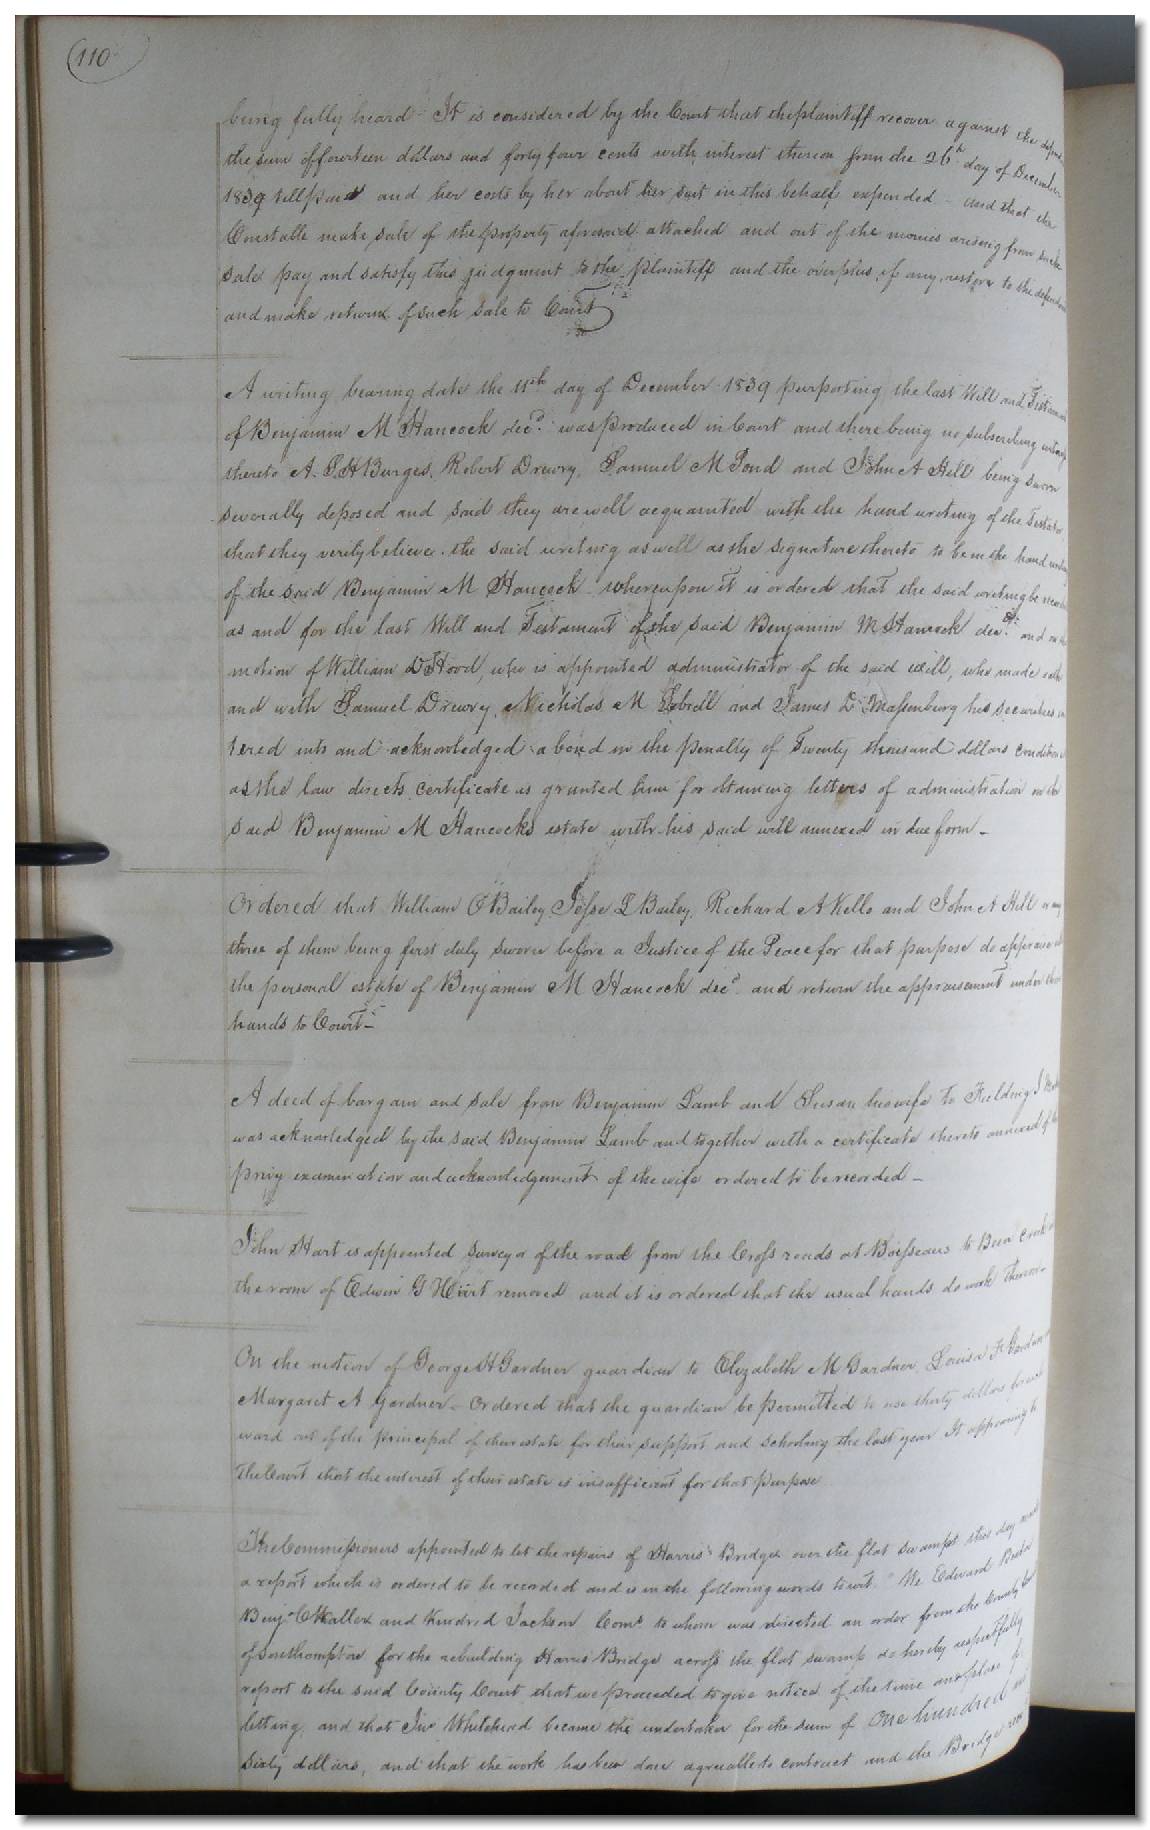 110
being fully heard - It is considered by the Court that the plaintiff recover against the
the sum of fourteen dollars and forty four cents with interest thereon from the 26th day of December
1839 till paid and her costs by her about her suit in this behalf expended - and that the
Constable make sale of the property aforesaid attached and out of the monies arising from such
sale pay and satisfy this judgment to the plaintiff and the overplus, if any, restore to the
and make return of such sale to Court
A writing bearing date the 11th day of December 1839 purporting the last Will and
of Benjamin M Hancock decd. was produced in Court and there being no subscribing
thereto A. S. H Burges, Robert Drewry, Samuel M Pond and John A Hill being sworn
severally deposed and said they are well acquainted with the hand writing of the Testator
that they verily believe the said writing as well as the signature thereto to be in the hand
of the said Benjamin M Hancock - whereupon it is ordered that the said writing be
as and for the last Will and Testament of the said Benjamin M Hancock decd. and on
motion of William D Hood, who is appointed administrator of the said will, who made oath
and with Samuel Drewry, Nicholas M Sebrell and James D Massenburg his securities
tered into and acknowledged a bond in the penalty of Twenty thousand dollars
as the law directs certificate is granted him for obtaining letters of administration on the
said Benjamin M Hancocks estate with his said will annexed in due form -
Ordered that William O Bailey, Jesse L Bailey, Richard A Kello and John A Hill or any
three of them being first duly sworn before a Justice of the Peace for that purpose do appraise
the personal estate of Benjamin M Hancock decd. and return the appraisement under their
hands to Court -
A deed of bargain and sale from Benjamin Lamb and Susan his wife to Fielding J
was acknowledged by the said Benjamin Lamb and together with a certificate thereto annexed of the
privy examination and acknowledgement of the wife ordered to be recorded -
John Hart is appointed Surveyor of the road from the Cross roads at Boisseaus to
the room of Edwin G Hart removed and it is ordered that the usual hands do work thereon -
On the motion of George H Gardner guardian to Elizabeth M Gardner, Louisa F Gardner
Margaret A Gardner - Ordered that the guardian be permitted to use thirty dollars for each
ward out of the principal of their estate for their support and schooling the last year It appearing to
the Court that the interest of their estate is insufficient for that purpose
The Commissioners appointed to let the repairs of Harris' Bridge over the flat swamp this day
a report which is ordered to be recorded and is in the following words to wit. "We Edward
Benj. C Waller and Kindred Jackson Coms. to whom was directed an order from the County
of Southampton for the rebuilding Harris Bridge across the flat swamp do hereby respectfully
report to the said County Court that we proceeded to give notice of the time and place
letting, and that Jno Whitehead became the undertaker for the sum of One hundred
sixty dollars, and that the work has been done agreeable to contract and the Bridge